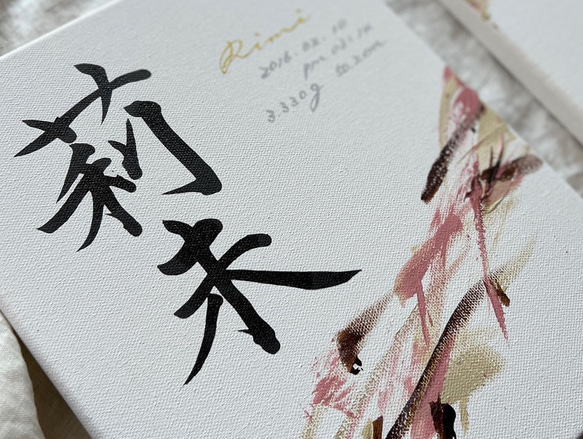 Rimi
2016. 02. 10
pm 03:14
3.330g 50.2cm
莉未